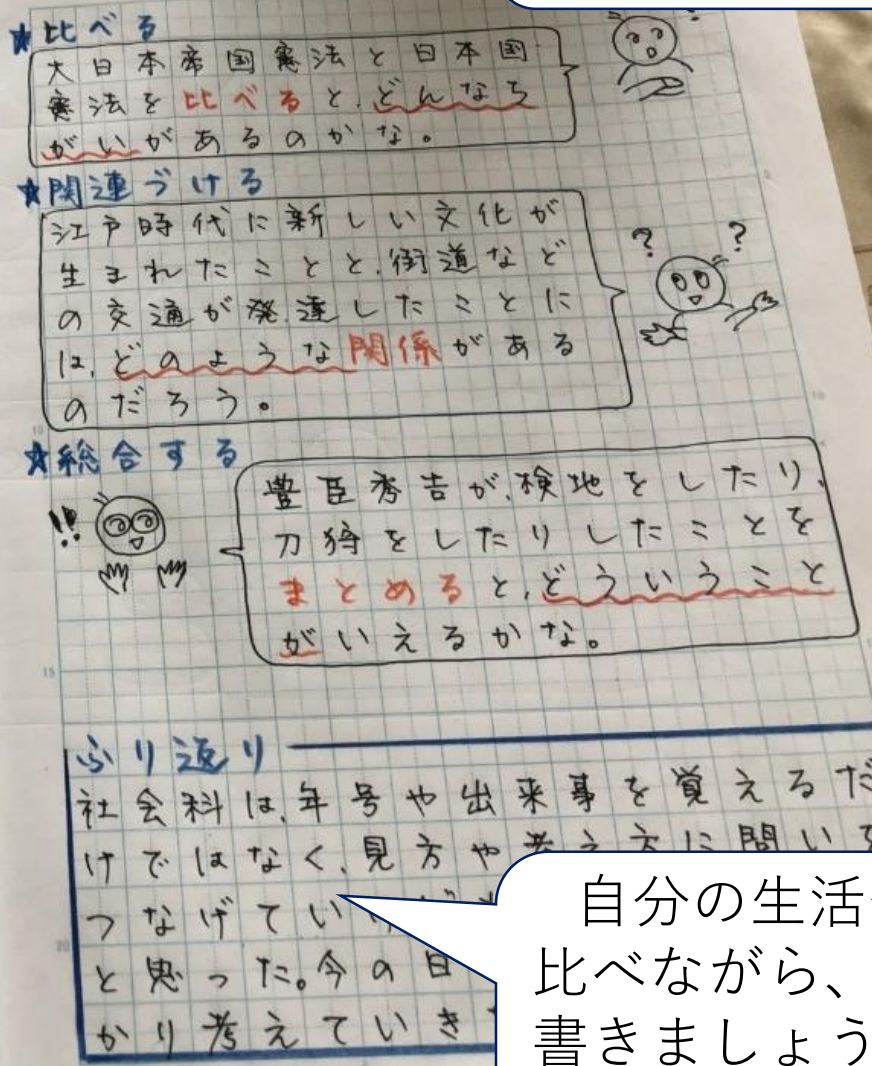 ★比べる
大日本帝国憲法と日本国
憲法を比べると、どんなち
がいがあるのかな。
★関連づける
江戸時代に新しい文化が
生まれたことと、街道など
の交通が発達したことに
は、どのような関係がある
のだろう。
★総合する
豊臣秀吉が、検地をしたり、
刀狩をしたりしたことを
まとめると、どういうこと
がいえるかな。
ふり返り
社会科は、年号や出来事を覚えるだ
けではなく、見方や考え方に問いを
つなげてい
と思った。今の日
かり考えていき
自分の生活
比べながら、
書きましょう